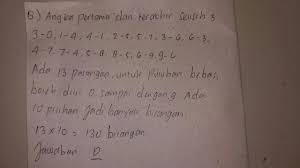 B) Angka pertama dan terakhir selisih 3
3-0, 1-4, 4-1, 2-5, 5-2, 3-6, 6-3,
4-7, 7-4, 5-8, 8-5, 6-9, 9-6
Ada 13 pasangan, untuk puluhan bebas,
boleh diisi 0 sampai dengan 9. Ada
10 pilihan Jadi banyak bilangan
13 x 10 = 130 bilangan
Jawaban D